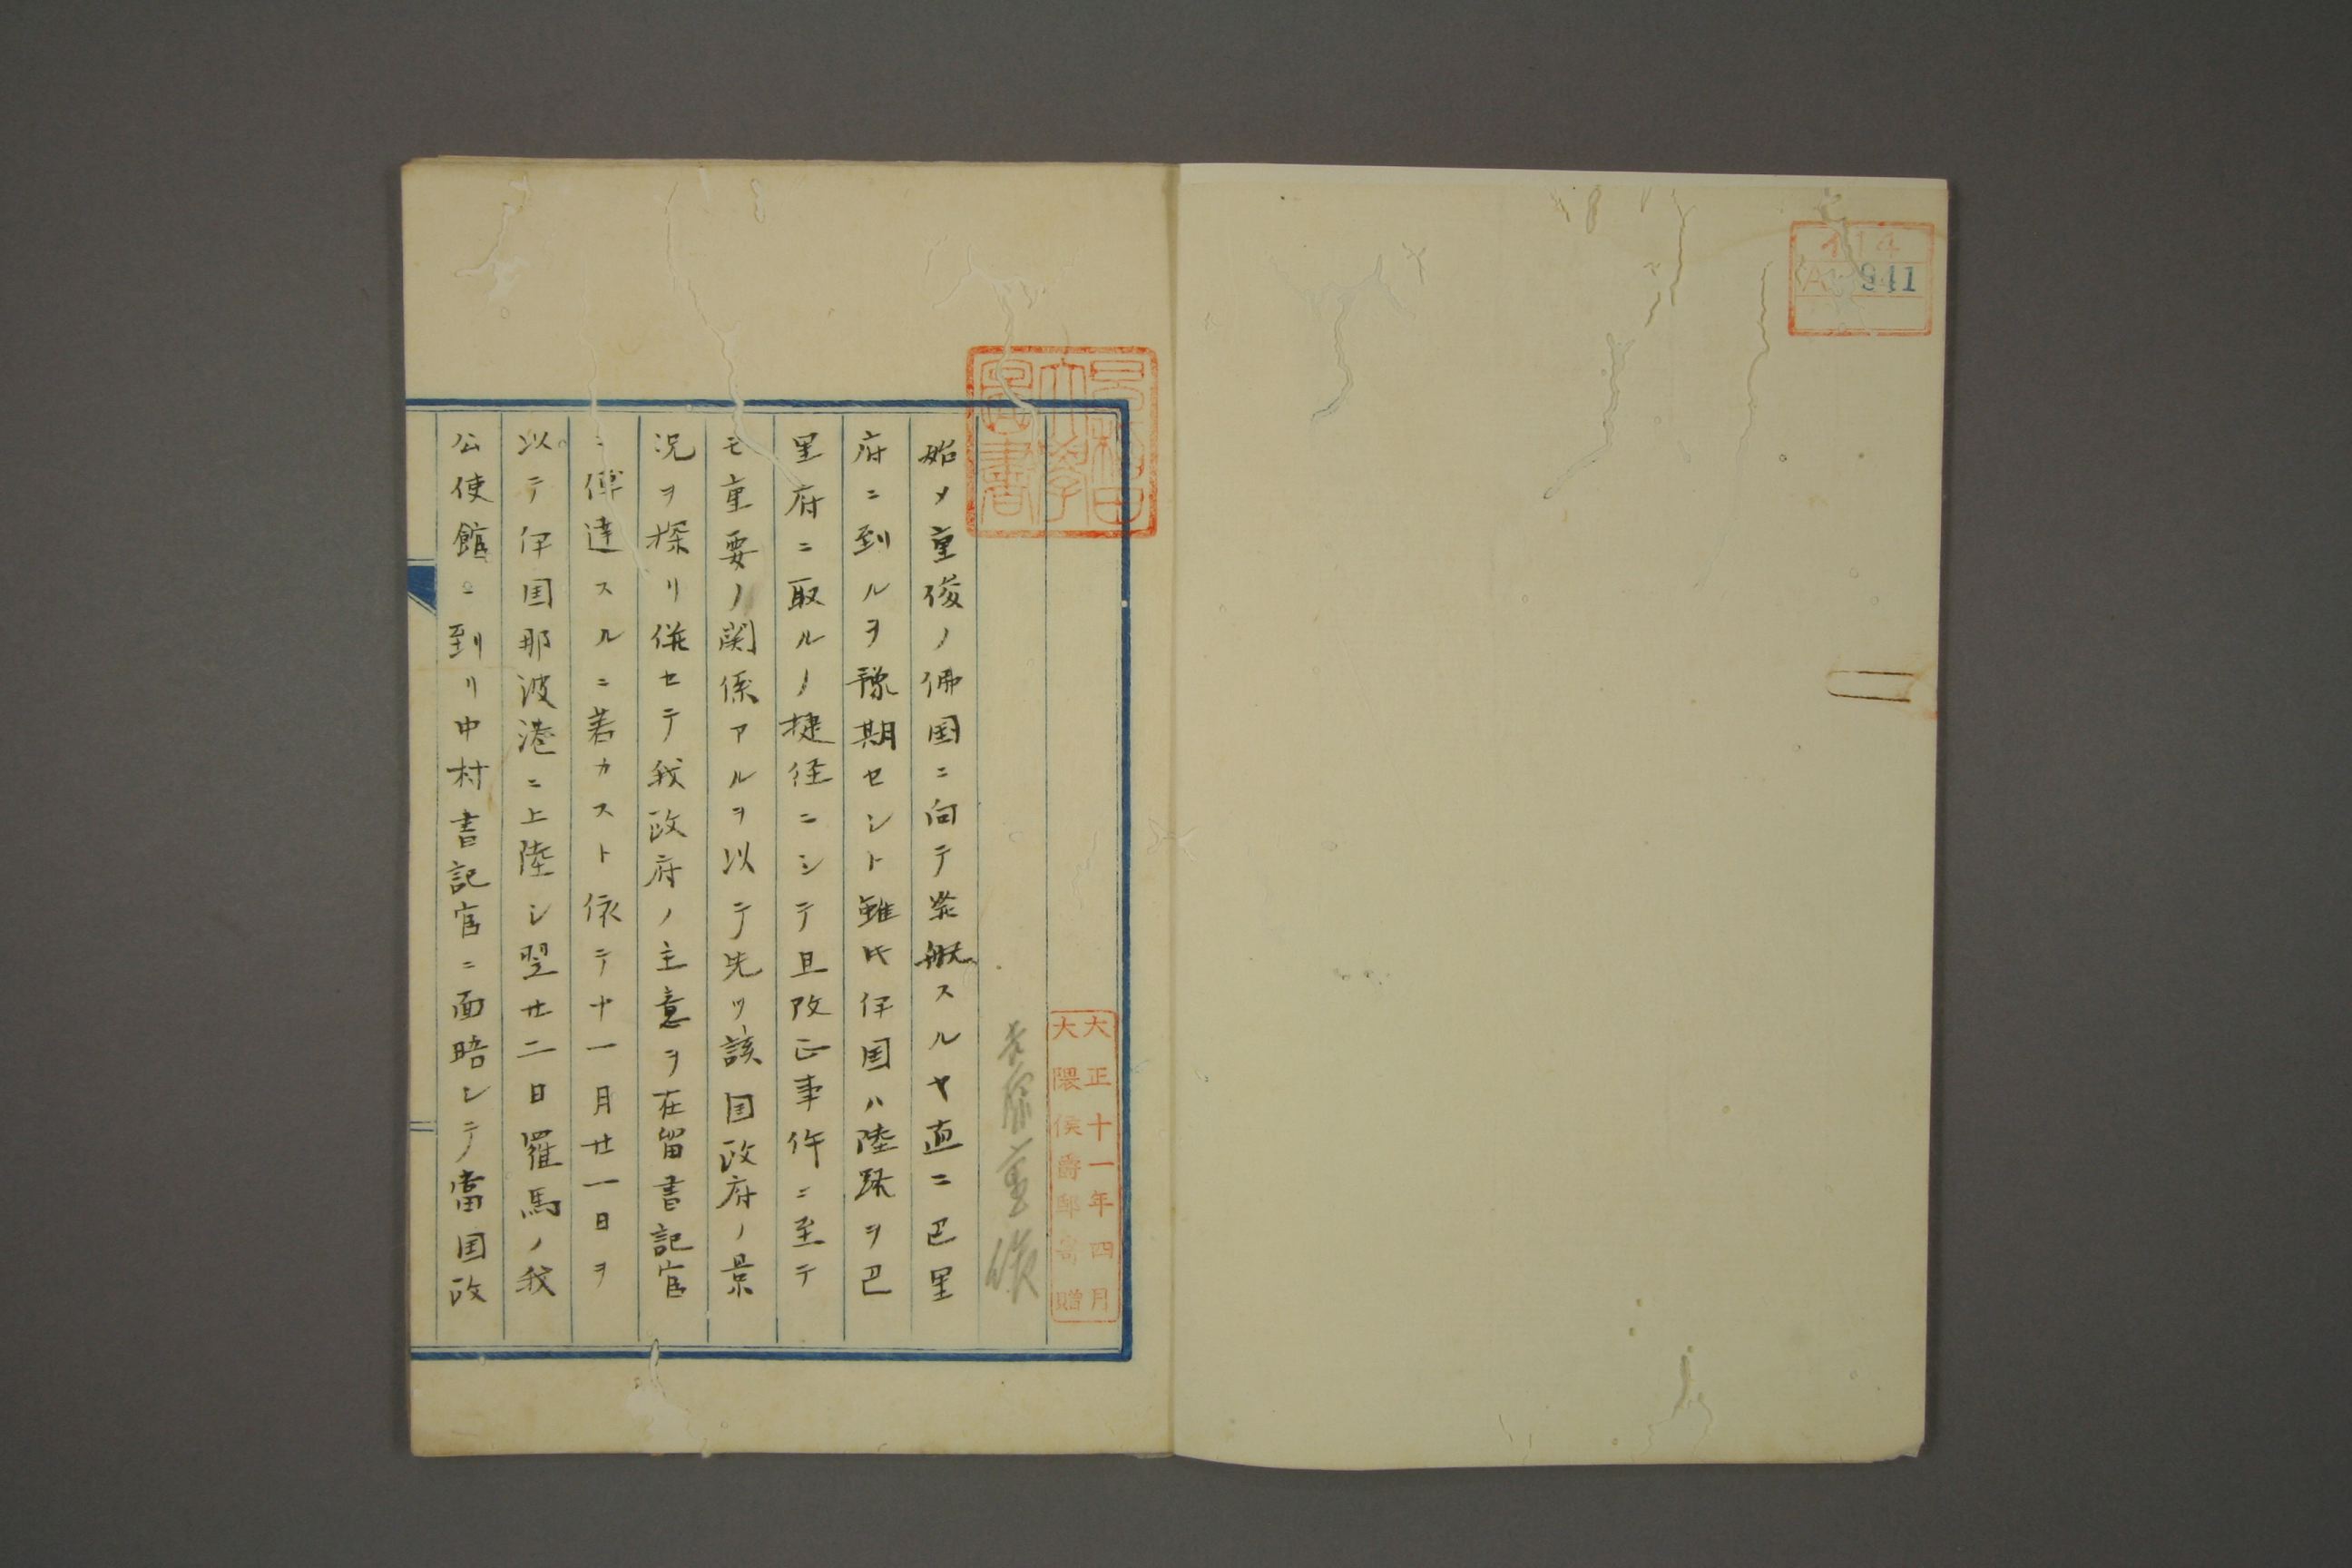 114
941
早稲田
大學
圖書
大正十一年四月
大隈侯爵邸寄贈
重俊
始メ重俊ノ佛国ニ向テ発航スルヤ直ニ巴里
府ニ到ルヲ豫期セシト雖氏伊国ハ陸路ヲ巴
里府ニ取ルノ捷径ニシテ且改正事件ニ至テ
モ重要ノ関係アルヲ以テ先ツ該国政府ノ景
況ヲ探リ併セテ我政府ノ主意ヲ在留書記官
ニ傳達スルニ若カスト依テ十一月廿一日ヲ
以テ伊国那波港ニ上陸シ翌廿二日羅馬ノ我
公使館ニ到リ中村書記官ニ面晤シテ當国政